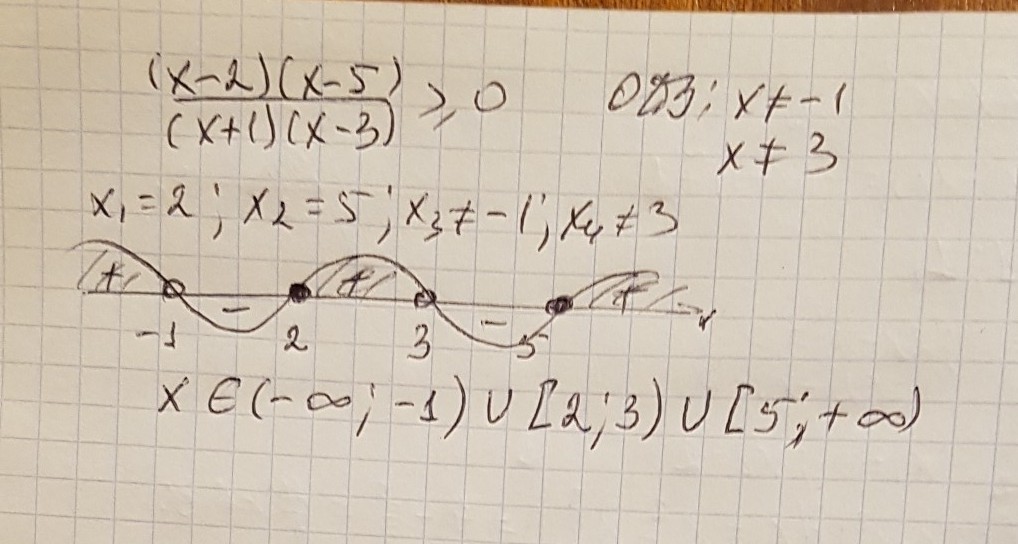 (x-2)(x-5)/(x+1)(x-3) ≥ 0 ОДЗ: x ≠ -1
x ≠ 3
x₁ = 2; x₂ = 5; x₃ ≠ -1; x₄ ≠ 3
+ - + - + x
-1 2 3 5
x ∈ (-∞; -1) ∪ [2; 3) ∪ [5; +∞)